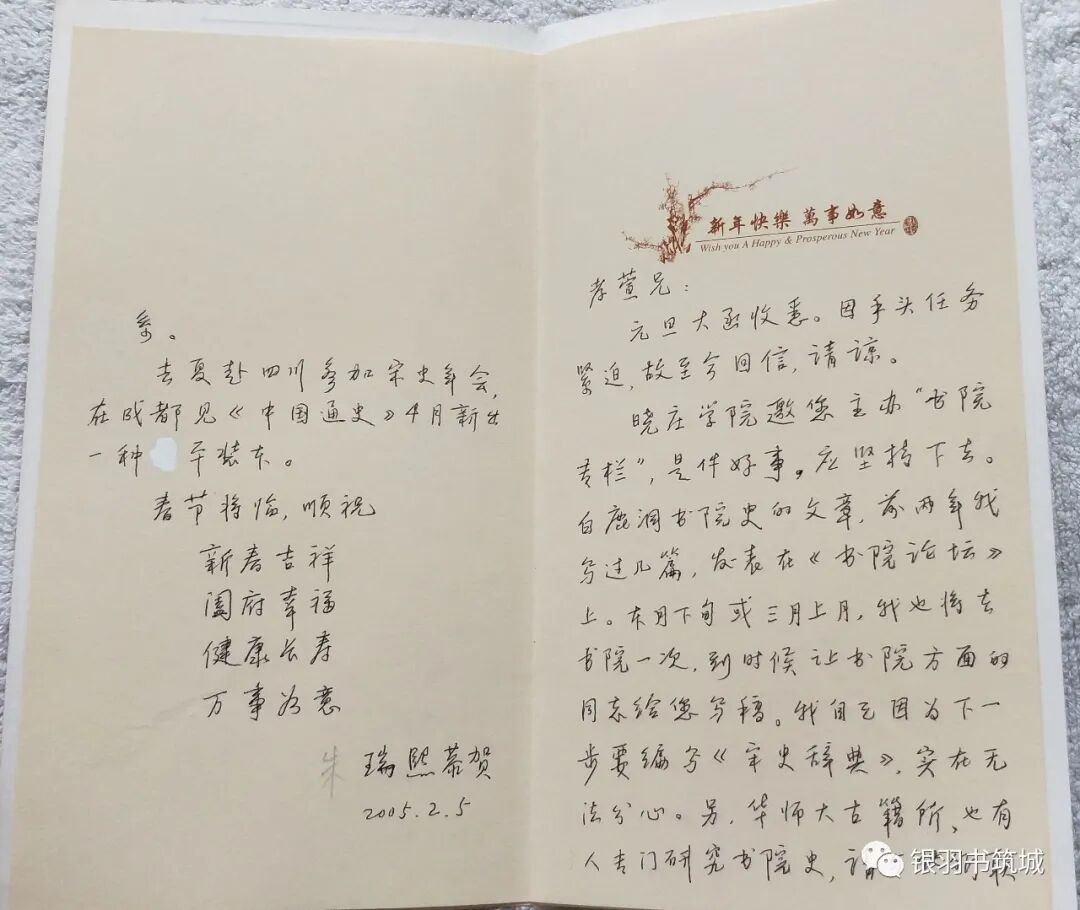 新年快樂 萬事如意
Wish you A Happy & Prosperous New Year
孝萱兄：
元旦大函收悉。因手头任务
紧迫，故至今回信，请谅。
晓庄学院邀您主办“书院
专栏”，是件好事，应坚持下去。
白鹿洞书院史的文章，前两年我
写过几篇，发表在《书院论坛》
上。本月下旬或三月上月，我也将去
书院一次，到时候让书院方面的
同志给您写稿。我自己因为下一
步要编写《宋史辞典》，实在无
法分心。另，华师大古籍所，也有
人专门研究书院史，请联
系。
去夏赴四川参加宋史年会，
在成都见《中国通史》4月新出
一种平装本。
春节将临，顺祝
新春吉祥
阖府幸福
健康长寿
万事如意
朱瑞熙恭贺
2005.2.5
银羽书筑城